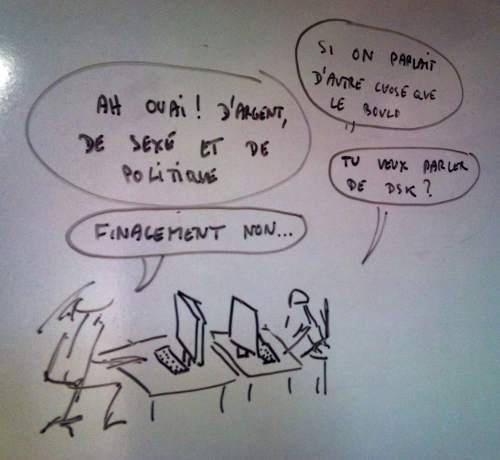 SI ON PARLAIT
D'AUTRE CHOSE QUE
LE BOULO
AH OUAI ! D'ARGENT,
DE SEXE ET DE
POLITIQUE
TU VEUX PARLER
DE DSK ?
FINALEMENT NON...